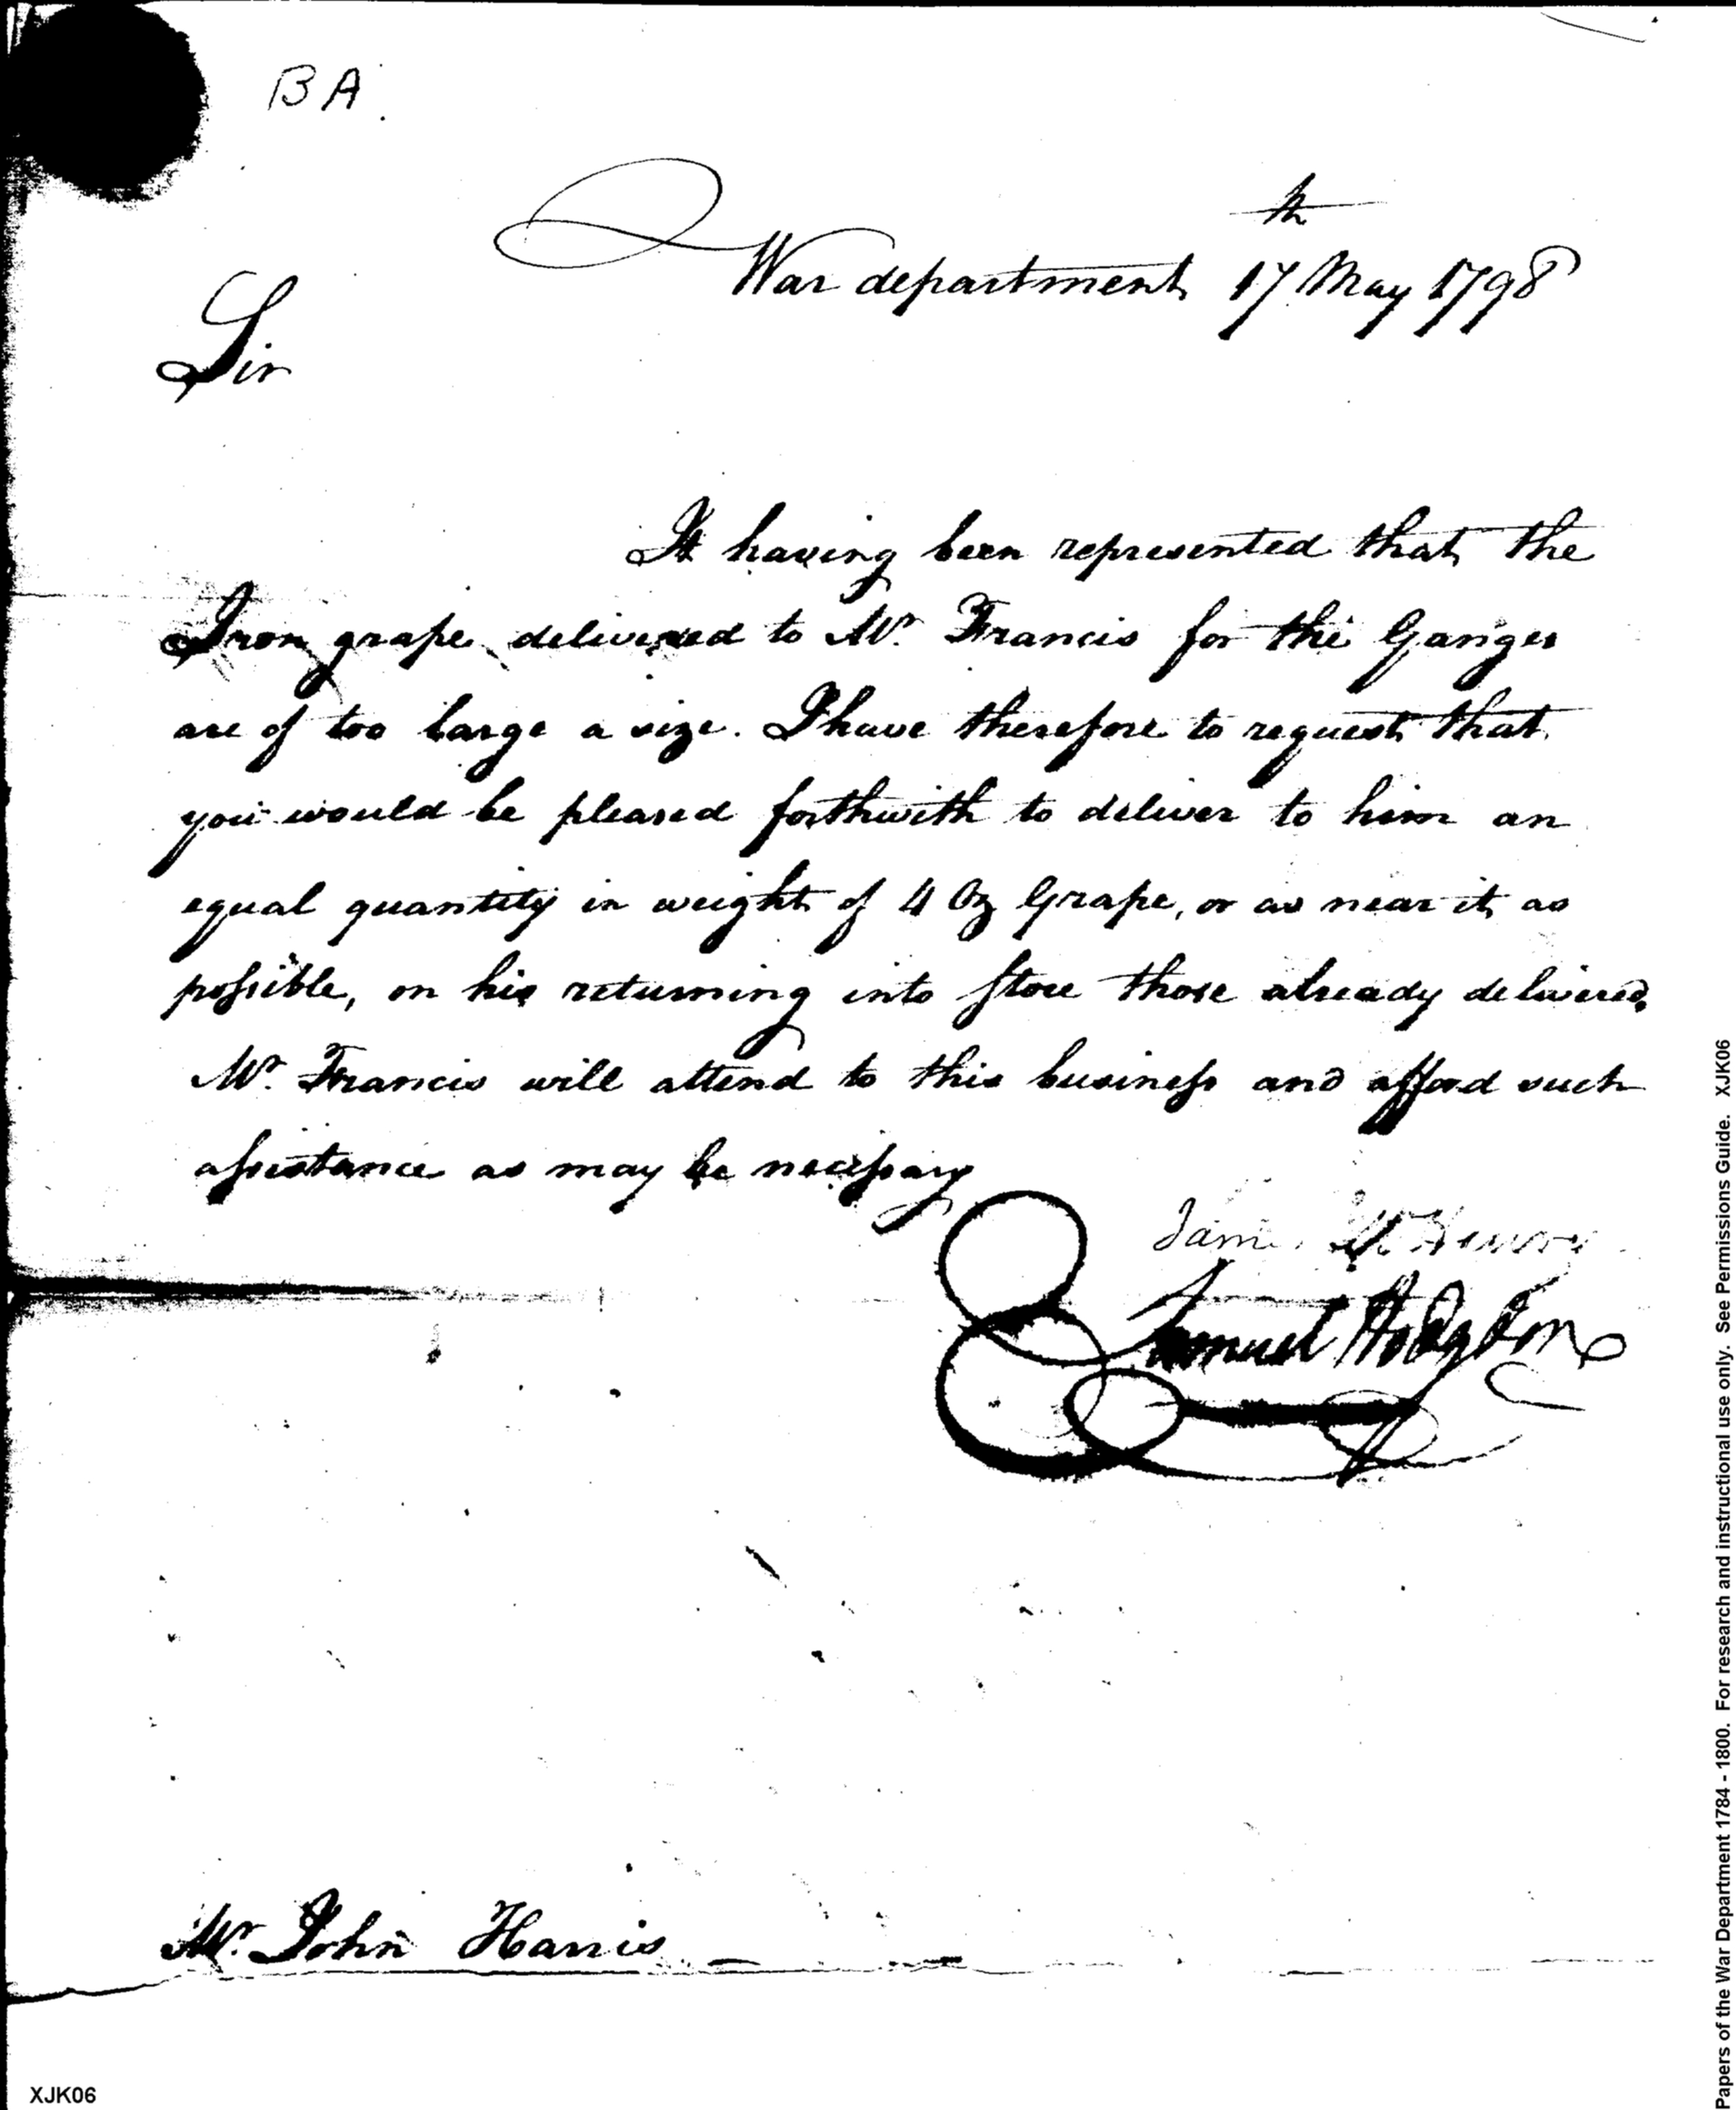 BA.
War department 17th May 1798
Sir
It having been represented that the
Iron grape delivered to Mr. Francis for the Ganges
are of too large a size. I have therefore to request that
you would be pleased forthwith to deliver to him an
equal quantity in weight of 4 Oz Grape, or as near it as
possible, on his returning into Store those already delivered,
Mr. Francis will attend to this business and afford such
assistance as may be necessary
James McHenry
Samuel Hodgdon
Mr. John Harris
XJK06
Papers of the War Department 1784 - 1800. For research and instructional use only. See Permissions Guide. XJK06